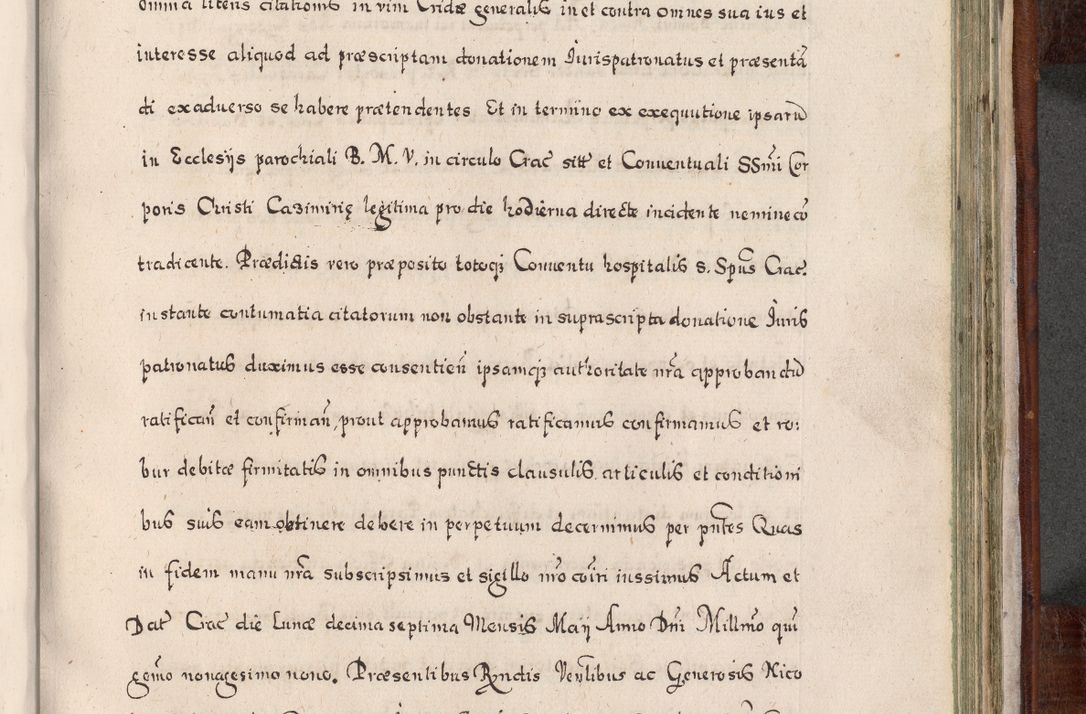 omnia literis citationis in vim Cridæ generalis in et contra omnes sua ius et
interesse aliquod ad præscriptam donationem Iurispatronatus et præsentā
di exaduerso se habere prætendentes. Et in termino ex exequutione ipsarū
in Ecclesijs parochiali B. M. V. in circulo Crac̄ sitt̄ et Conuentuali SSm̄i Cor
poris Christi Casimirię legitima pro die hodierna directe incidente nemine cō
tradicente. Prædictis vero præposito totoq̄ Conuentu hospitalis S. Sp̄us Crac̄
instante contumatia citatorum non obstante in suprascripta donatione Iuris
patronatus duximus esse consentien̄ ipsamq̄ authoritate nr̄a approbandū
ratifican̄ et confirman̄, prout approbamus ratificamus confirmamus et ro:
bur debitæ firmitatis in omnibus punctis clausulis articulis et conditioni
bus suis eam obtinere debere in perpetuum decernimus per pn̄tes Quas
in fidem manu nr̄a subscripsimus et sigillo nr̄o cōīri iussimus Actum et
Dat̄ Crac̄ die Lunæ decima septima Mensis Maij Anno Dn̄i Millm̄o quī
gem̄o nonagesimo nono. Præsentibus Rṅdis Ven̄libus ac Generosis Nico